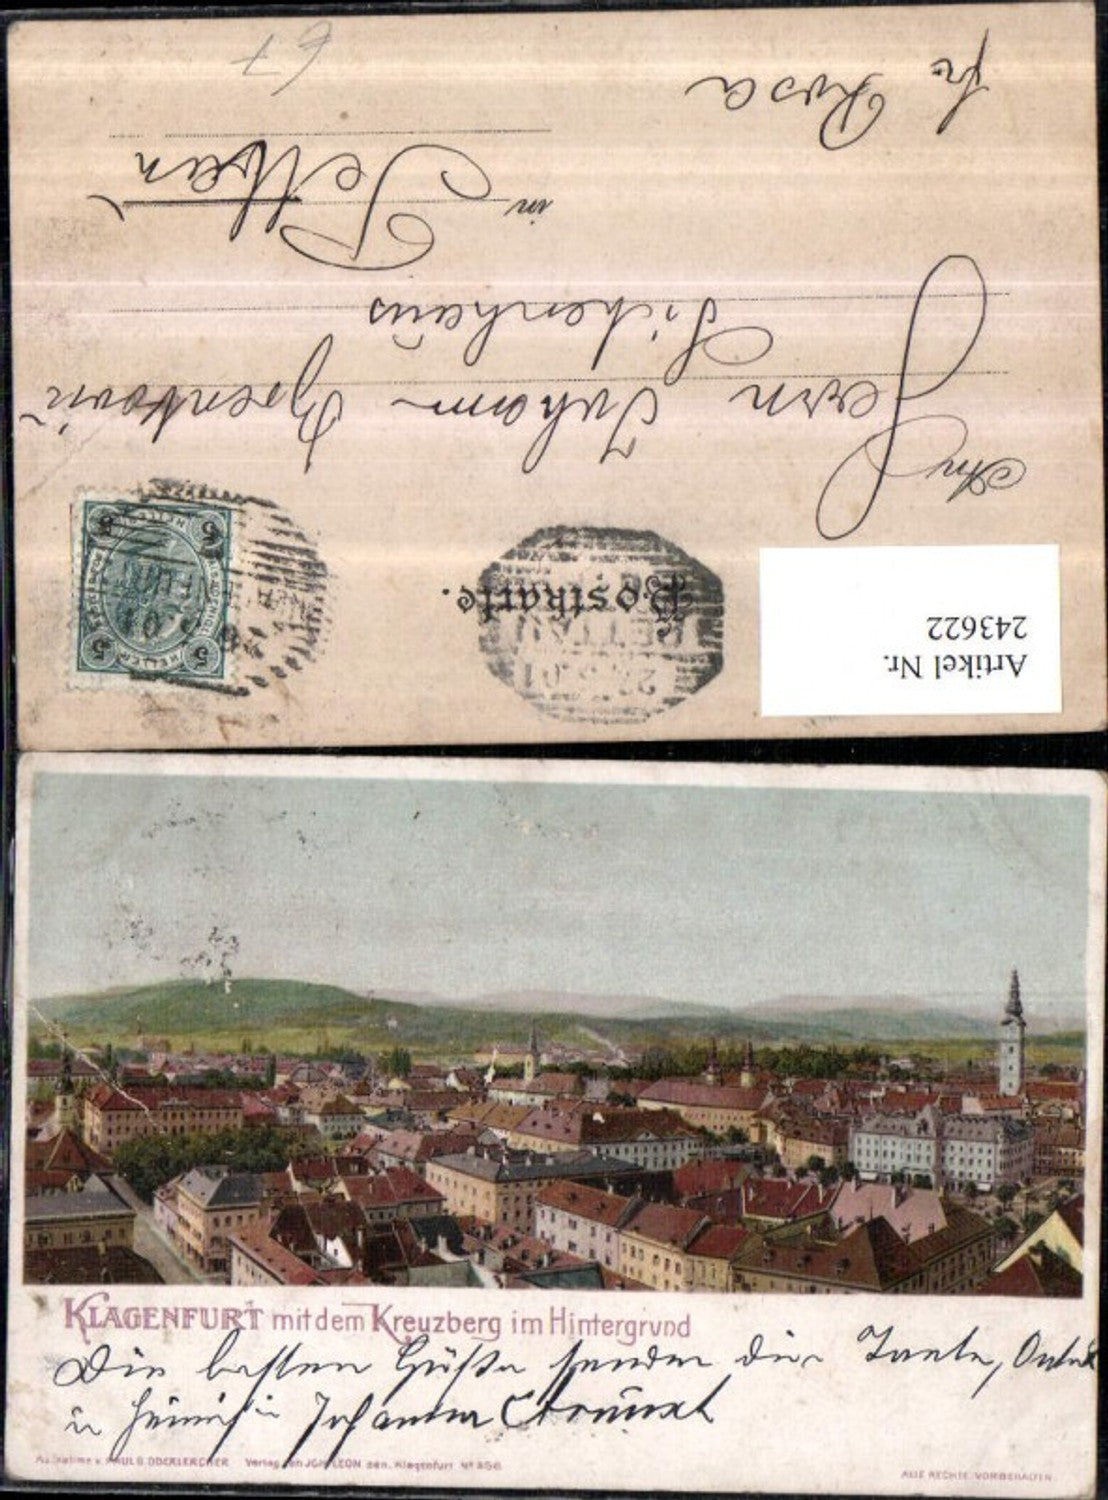 Artikel Nr.
243622
Postkarte.
PETTAU
5 HELLER 5
An
Herrn Johann
in Pettau
Fr Rosa
67
KLAGENFURT mit dem Kreuzberg im Hintergrund
Die besten Grüße senden dir Tante, Onkel
u Johanna
Aufnahme v. PAUL B. OBERLERCHER Verlag von JOH. LEON sen. Klagenfurt Nº 856
ALLE RECHTE VORBEHALTEN